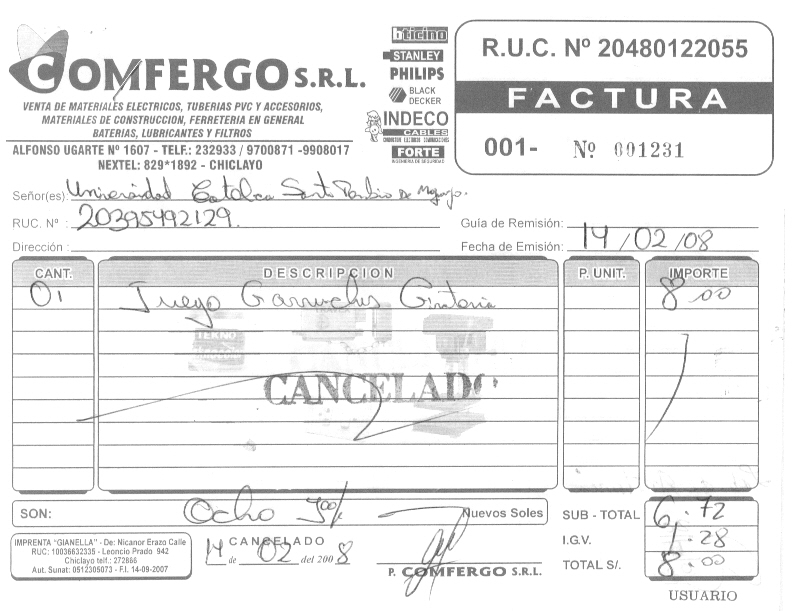 COMFERGO S.R.L.
VENTA DE MATERIALES ELECTRICOS, TUBERIAS PVC Y ACCESORIOS,
MATERIALES DE CONSTRUCCION, FERRETERIA EN GENERAL
BATERIAS, LUBRICANTES Y FILTROS
ALFONSO UGARTE Nº 1607 - TELF.: 232933 / 9700871 -9908017
NEXTEL: 829*1892 - CHICLAYO
bticino
STANLEY
PHILIPS
BLACK
DECKER
INDECO
CABLES
FORTE
R.U.C. Nº 20480122055
FACTURA
001- Nº 001231
Señor(es): Universidad Catolica Santo Toribio de Mogrovejo.
RUC. Nº : 20395492129.
Guía de Remisión:
Dirección :
Fecha de Emisión: 14/02/08
CANT. DESCRIPCION P. UNIT. IMPORTE
01 Juego Garruchas Giratoria 8.00
CANCELADO
SON: Ocho Nuevos Soles
SUB - TOTAL 6.72
I.G.V. 1.28
TOTAL S/. 8.00
IMPRENTA "GIANELLA" - De: Nicanor Erazo Calle
RUC: 10036632335 - Leoncio Prado 942
Chiclayo telf.: 272866
Aut. Sunat: 0512305073 - F.I. 14-09-2007
CANCELADO
14 de 02 del 2008
P. COMFERGO S.R.L.
USUARIO